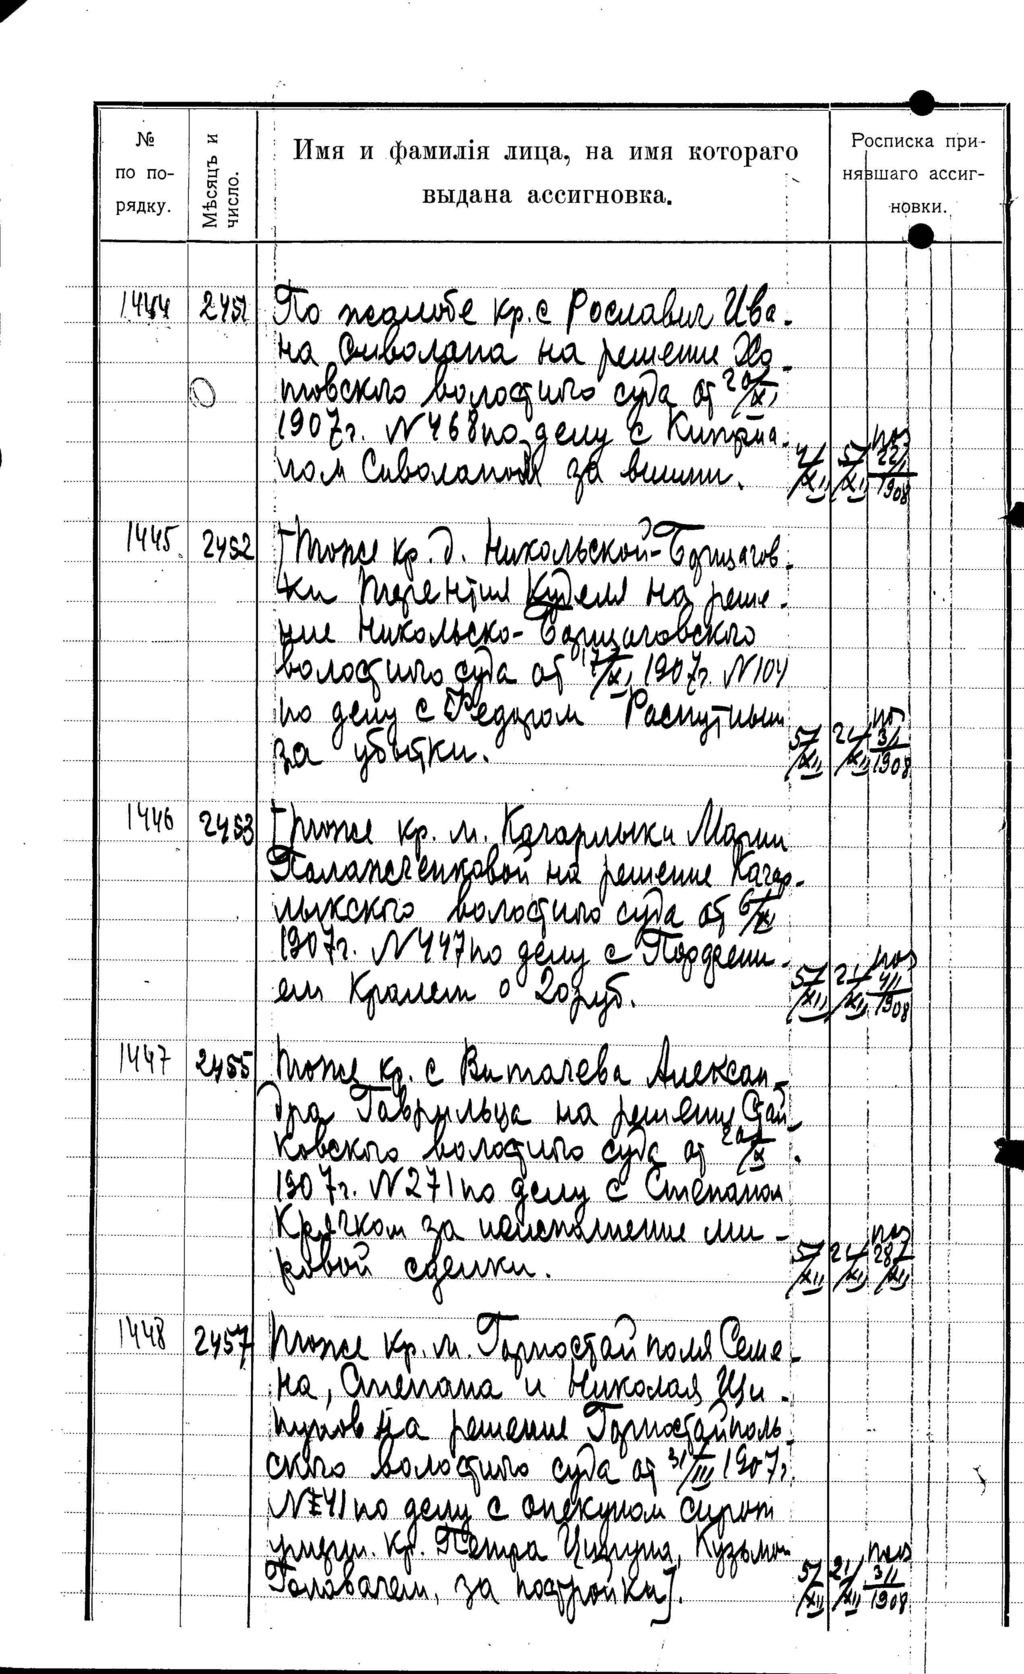 № по по-рядку.
Мѣсяцъ и число.
Имя и фамилія лица, на имя котораго
выдана ассигновка.
Росписка при-
нявшаго ассиг-
новки.
1444 2451 По жалобе кр. с Рославич Ива-
на Сиволапа на решение Хо-
товского волостного суда от 20/XI
1907г. N 468 по делу с Киприа-
ном Сиволапом за вишни. 4/XII 5/XII 22/1 1908
1445. 2452 [тоже кр. д. Никольской-Борщагов-
ки Терентия Куделя на реше-
ние Никольско-Борщаговского
волостного суда от 17/XI 1907г. N 104
по делу с Федором Распутным
за убытки. 5/XII 21/XII 3/1 1908
1446 2453 [тоже кр. м. Кагарлыки Марии
Паламсченковой на решение Кагар-
лыкского волостного суда от 6/XI
1907г. N 447 по делу с Гордеем
Кралем о 20 руб. 5/XII 21/XII 4/1 1908
1447 2455 тоже кр. с Витачева Алексан-
дра Гаврильца на решение Стай-
ковского волостного суда от 20/X
1907г. N 271 по делу с Степаном
Крячком за неисполнение ми-
ровой сделки. 5/XII 21/XII 28/XII
1448 2457 тоже кр. м. Горностайполя Семе-
на, Степана и Николая Ци-
пунов на решение Горностайполь
ского волостного суда от 31/III 1907г.
N 41 по делу с опекуном сирот
умерш. кр. Петра Ципуна, Кузьмой
Головачем, за постройки]. 5/XII 21/XII 3/1 1908